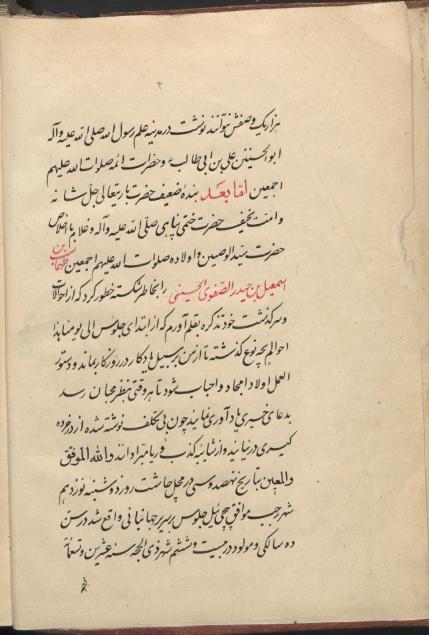 هزار یک وصفش نتوانند نوشت در مدینه علم رسول الله صلی الله علیه و آله
ابوالحسنین علی بن ابی طالب و حضرات ائمه صلوات الله علیهم
اجمعین اما بعد بنده ضعیف حضرت باریتعالی جل شانه
و امت نحیف حضرت ختمی پناهی صلی الله علیه و آله و غلام باخلاص
حضرت سیدالوصیین و اولاده صلوات الله علیهم اجمعین طهماسب بن
اسمعیل بن حیدر الصفوی الحسینی را بخاطر شکسته خطور کرد که از احوالات
و سرگذشت خود تذکره بقلم آورم که از ابتدای جلوس الی یومنا هذا
احوالم بچه نوع گذشته تا از من بر سبیل یادکار در روزکار بماند و دستور
العمل اولاد امجاد و احباب شود تا هر وقتی بنظر محبان رسد
بدعای خیری یادآوری نمایند چون بی تکلف نوشته شده از در خرده
کیری در نیایند و از شایبه کذب و ریا مبرا دانند والله الموفق
والمعین بتاریخ نهصد و سی در محل چاشت روز دوشنبه نوزدهم
شهر رجب موافق پیچی ئیل جلوس بر سریر جهانبانی واقع شد در سن
ده سالکی و مولود در بیست و ششم شهر ذی الحجه سنه عشرین و تسعمائة